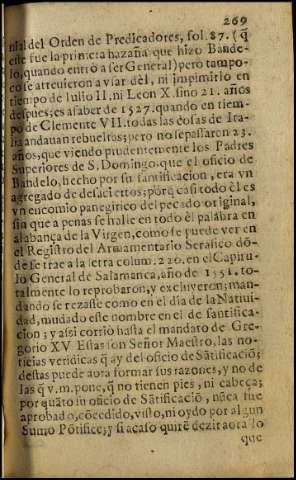 269
nial del Orden de Predicadores, fol. 87. (q̄
este fue la primera hazaña que hizo Bande-
lo, quando entrò a ser General) pero tampo-
co se atreuieron a vsar dèl, ni impimirlo en
tiempo de Iulio II. ni Leon X. sino 21. años
despues; es a saber de 1527. quando en tiem-
po de Clemente VII. todas las cosas de Ita-
lia andauan rebueltas; pero no se passaron 23.
años, que viendo prudentemente los Padres
Superiores de S. Domingo, que el oficio de
Bandelo, hecho por su santificacion, era vn
agregado de desaciertos; porq̄ casi todo èl es
vn encomio panegirico del pecado original,
sin que a penas se halle en todo èl palabra en
alabança de la Virgen, como se puede ver en
el Registro del Armamentario Serafico dō-
de se trae a la letra colum. 220. en el Capitu-
lo General de Salamanca, año de 1551. to-
talmente lo reprobaron, y excluyeron; man-
dando se rezasse como en el dia de la Natiui-
dad, mudado este nombre en el de santifica-
cion; y assi corriò hasta el mandato de Gre-
gorio XV. Estas son Señor Maestro, las no-
ticias veridicas q̄ ay del oficio de Sātificaciō;
destas puede aora formar sus razones, y no de
las q̄ v.m. pone, q̄ no tienen pies, ni cabeça;
por quāto su oficio de Sātificaciō, nūca fue
aprobado, cōcedido, visto, ni oydo por algun
Sumo Pōtifice; y si acaso quirē dezir aora lo
que